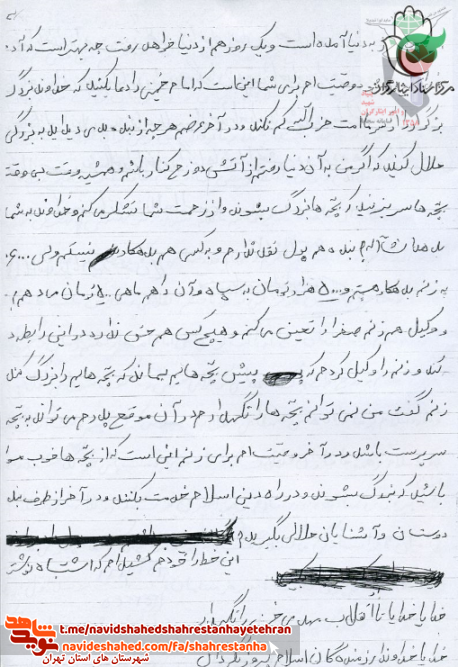 به دنیا آمده است و یک روز هم از دنیا خواهد رفت چه بهتر است که آد.
وصیت ام برای شما این است که امام خمینی را دعا بکنید که خداوند بزرگ
از سر ما امت حزب الله کم نکند و در آخر عرضم هر چه از بنده بدی دیده اید به بزرگی
حلال کنید که اگر من به آن دنیا رفتم از آتش دوزخ کنار باشم و همیشه وقت بی وقته
بچه ها سر بزنید که بچه ها بزرگ بشوند و از زحمت شما تشکر می کنم و خداوند به شما
بدهد انشاالله بنده هم پول نقد ندارم و به کسی هم بدهکار نیستم ولی
به زنم بدهکار هستم و هزار تومان به سپاه و آن را هم ماهی تومان می دهم.
و وکیل هم زنم صغرا را تعیین می کنم و هیچ کس هم حق ندارد در این رابطه د
کند و زنم را وکیل کردم که پیش بچه هایم بماند که بچه هایم را بزرگ کند
زنم گفت من نمی توانم بچه ها را نگهدارم در آن موقع پدرم می تواند به بچه
سرپرست باشد و در آخر وصیت ام برای زنم این است که از بچه ها خوب موا
باشید که بزرگ بشوند و در راه دین اسلام خدمت بکنند و در آخر از طرف بنده
دوستان و آشنایان حلالی بگیرید
این خط را خودم کشیده ام که اشتباه نوشتم
خدایا خدایا تا انقلاب مهدی خمینی را نگهدار
خدایا خداوندا رزمندگان اسلام پیروز بگردان
نوید شاهد
t.me/navidshahedshahrestanhayetehran
navideshahed.com/fa/shahrestanha
شهرستان های استان تهران